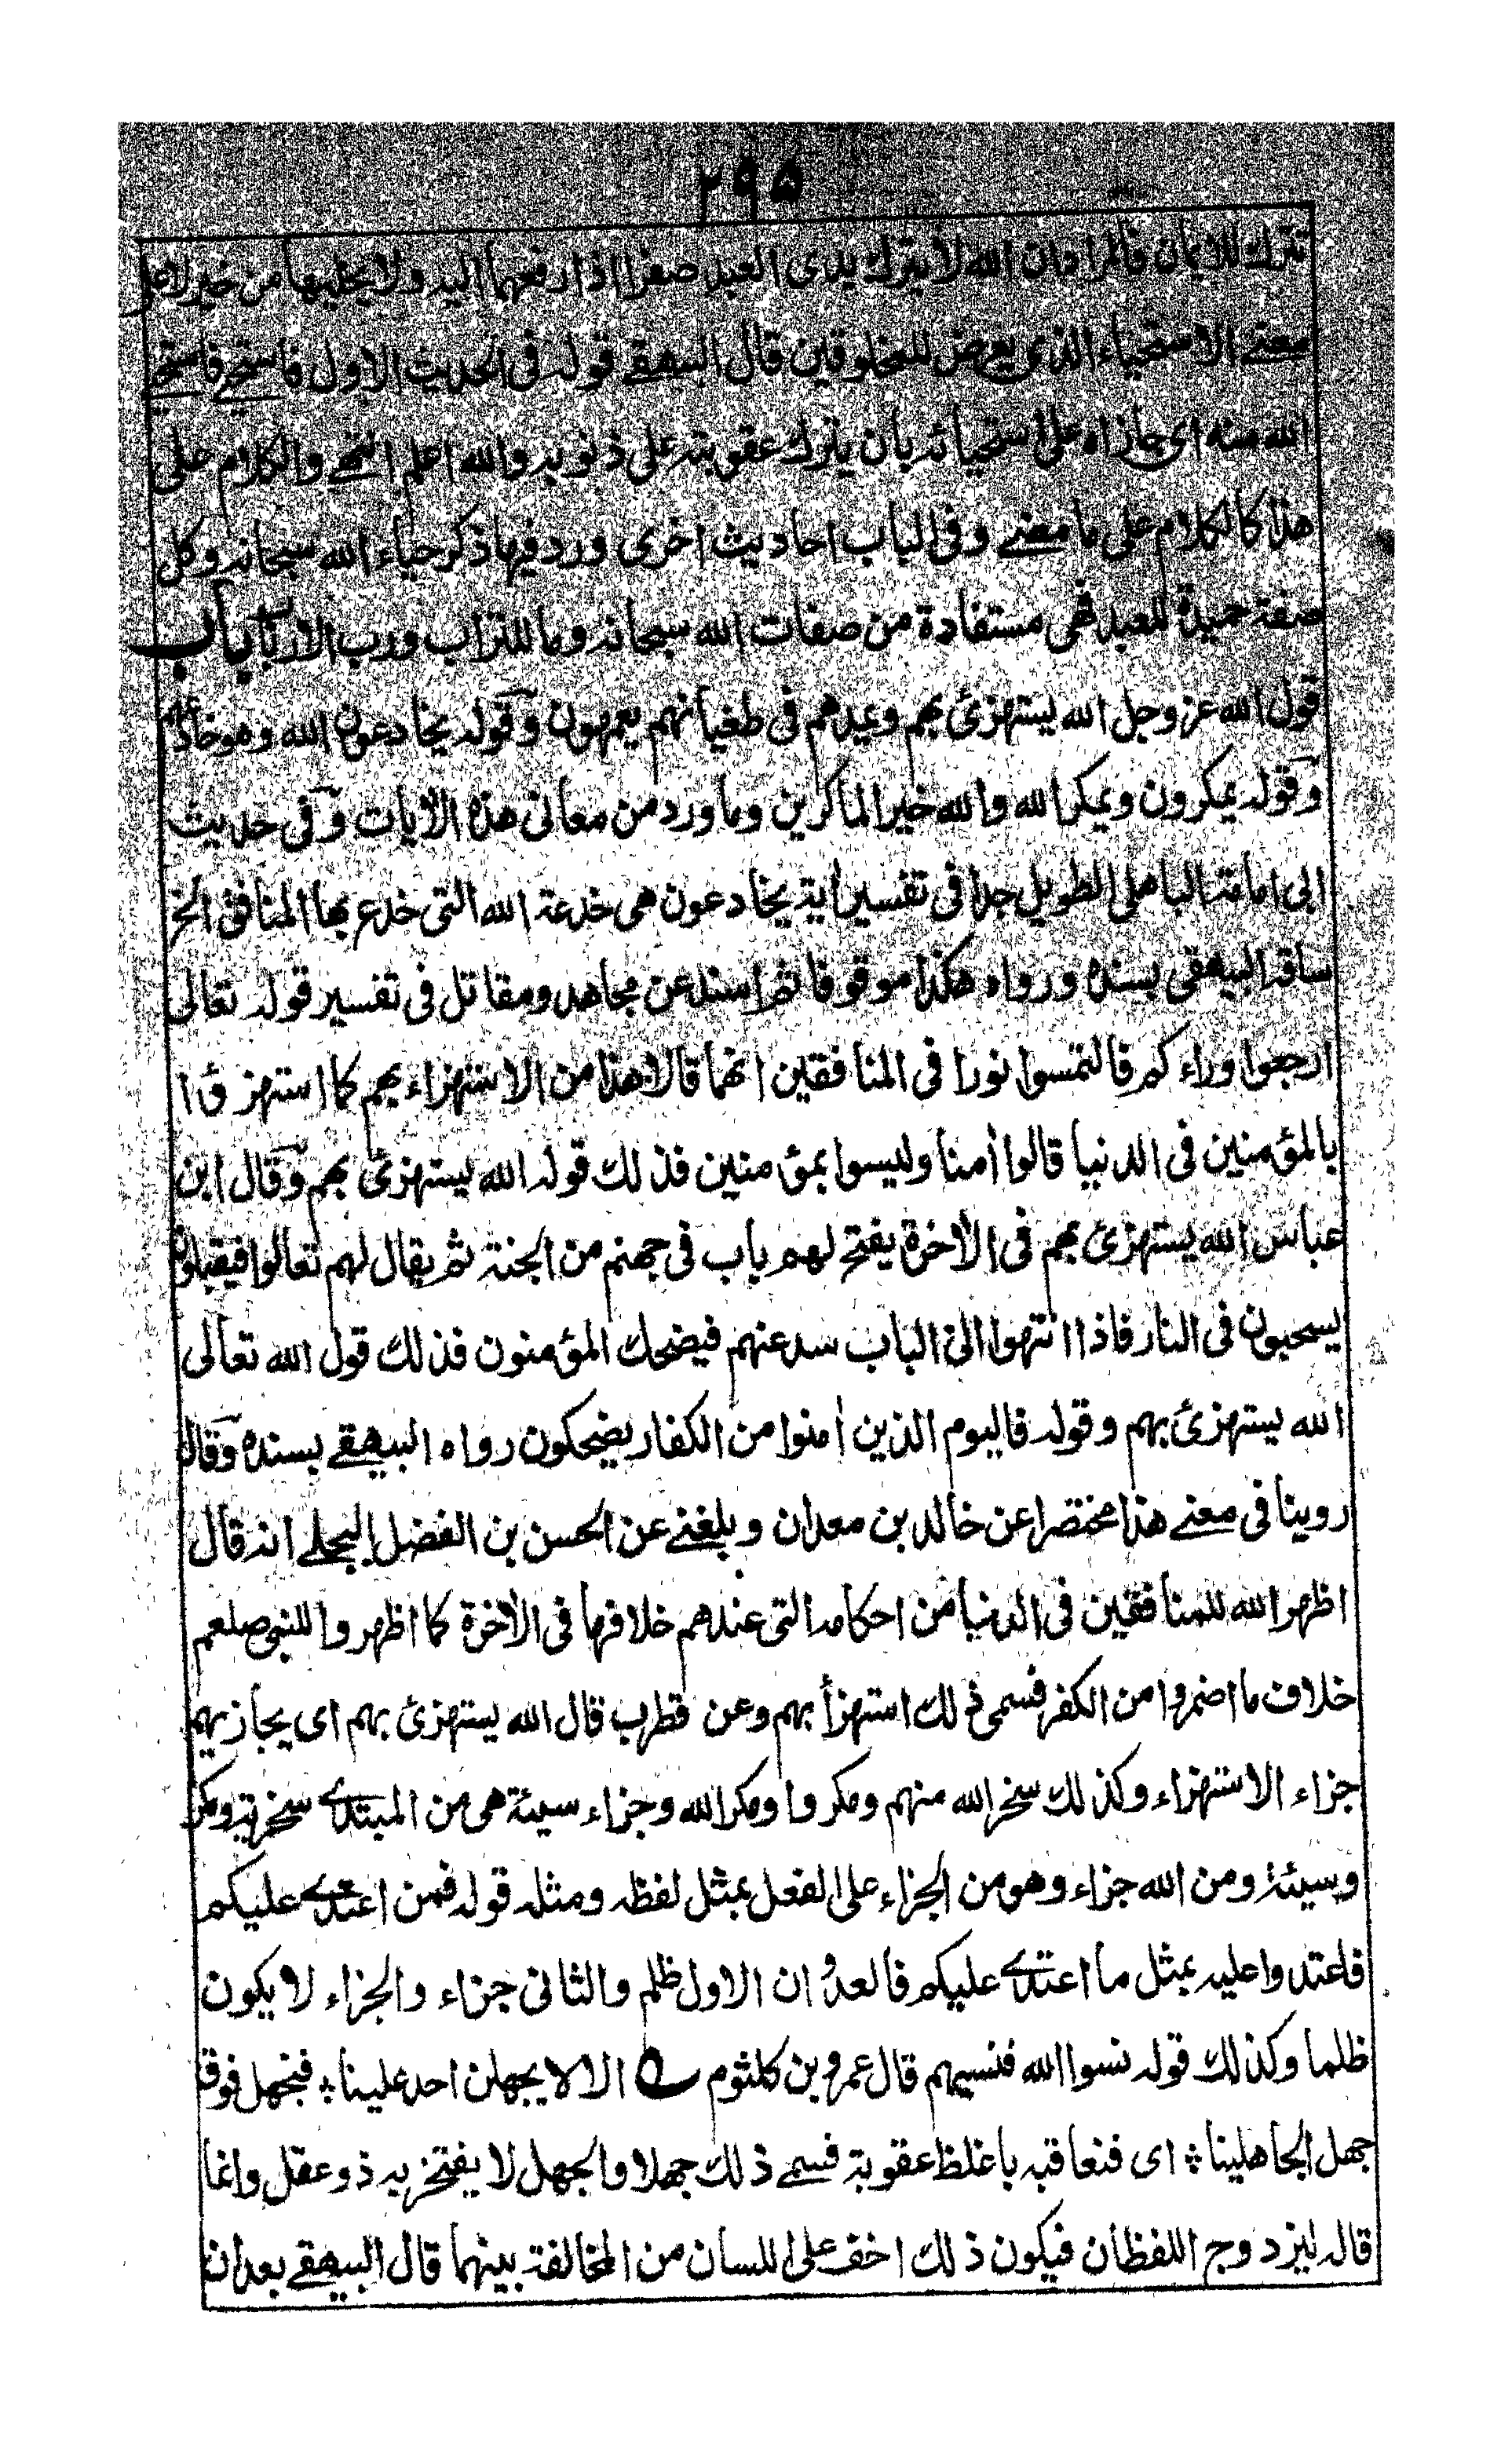 ۲۹۵
تترك للايمان فالمراد ان الله لا يترك يدى العبد صفرا اذا رفعهما اليه ولا يخليهما من خير لا على
معنى الاستحياء الذى يعرض للمخلوقين قال البيهقى قوله فى الحديث الاول فاستحى فاستحى
الله منه اى جازاه على استحيائه بان يترك عقوبته على ذنوبه والله اعلم انتهى والكلام على
هذا كالكلام على ما مضى وفى الباب احاديث اخرى ورد فيها ذكر حياء الله سبحانه وكل
صفة حميدة للعبد فهى مستفادة من صفات الله سبحانه وما للتراب ورب الارباب باب
قول الله عز وجل الله يستهزئ بهم ويمدهم فى طغيانهم يعمهون وقوله يخادعون الله وهو خادعهم
وقوله يمكرون ويمكر الله والله خير الماكرين وما ورد من معانى هذه الأيات وفى حديث
ابى امامة الباهلى الطويل جدا فى تفسير اية يخادعون هى خدعة الله التى خدع بها المنافق الخ
ساقه البيهقى بسنده ورواه هكذا موقوفا ثم اسند عن مجاهد ومقاتل فى تفسير قوله تعالى
ارجعوا وراءكم فالتمسوا نورا فى المنافقين انهما قالا هذا من الاستهزاء بهم كما استهزؤا
بالمؤمنين فى الدنيا قالوا أمنا وليسوا بمؤمنين فذلك قوله الله يستهزئ بهم وقال ابن
عباس الله يستهزئ بهم فى الأخرة يفتح لهم باب فى جهنم من الجنة ثم يقال لهم تعالوا فيقبلون
يسحبون فى النار فاذا انتهوا الى الباب سد عنهم فيضحك المؤمنون فذلك قول الله تعالى
الله يستهزئ بهم وقوله فاليوم الذين أمنوا من الكفار يضحكون رواه البيهقى بسنده وقال
روينا فى معنى هذا مختصرا عن خالد بن معدان وبلغنى عن الحسن بن الفضل البجلى انه قال
اظهر الله للمنافقين فى الدنيا من احكامه التى عندهم خلافها فى الأخرة كما اظهروا للنبى صلعم
خلاف ما اضمروا من الكفر فسمى ذلك استهزأ بهم وعن قطرب قال الله يستهزئ بهم اى يجازيهم
جزاء الاستهزاء وكذلك سخر الله منهم ومكروا ومكر الله وجزاء سيئة هى من المبتدى سخرية ومكر
وسيئة ومن الله جزاء وهو من الجزاء على الفعل بمثل لفظه ومثله قوله فمن اعتدى عليكم
فاعتدوا عليه بمثل ما اعتدى عليكم فالعدوان الاول ظلم والثانى جزاء والجزاء لا يكون
ظلما وكذلك قوله نسوا الله فنسيهم قال عمرو بن كلثوم الا لا يجهلن احد علينا فنجهل فوق
جهل الجاهلينا اى فنعاقبه باغلظ عقوبة فسمى ذلك جهلا والجهل لا يفتخر به ذو عقل وانما
قاله ليزدوج اللفظان فيكون ذلك اخف على اللسان من المخالفة بينهما قال البيهقى بعد ان